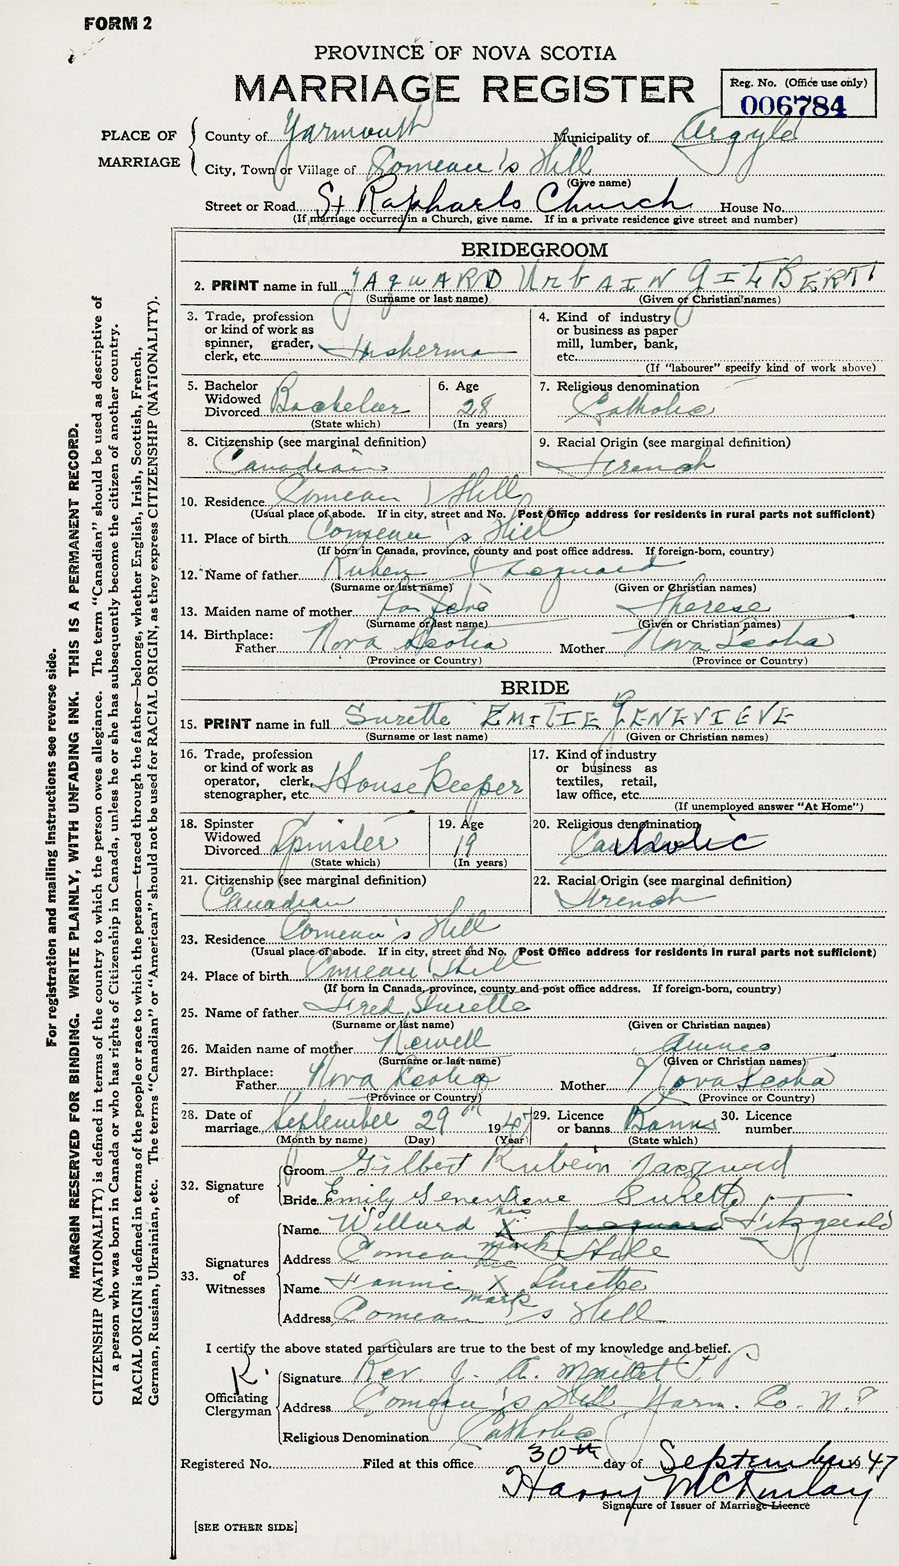 FORM 2
PROVINCE OF NOVA SCOTIA
MARRIAGE REGISTER
Reg. No. (Office use only)
006784
PLACE OF MARRIAGE
County of Yarmouth Municipality of Argyle
City, Town or Village of Comeau's Hill
(Give name)
Street or Road St Raphaels Church House No.
(If marriage occurred in a Church, give name. If in a private residence give street and number)
BRIDEGROOM
2. PRINT name in full JAQUARD UrbAIN GILBERT
(Surname or last name) (Given or Christian names)
3. Trade, profession or kind of work as spinner, grader, clerk, etc. Fisherman
4. Kind of industry or business as paper mill, lumber, bank, etc.
(If "labourer" specify kind of work above)
5. Bachelor Widowed Divorced Bachelor
(State which)
6. Age 28
(In years)
7. Religious denomination Catholic
8. Citizenship (see marginal definition) Canadian
9. Racial Origin (see marginal definition) French
10. Residence Comeau's Hill
(Usual place of abode. If in city, street and No. Post Office address for residents in rural parts not sufficient)
11. Place of birth Comeau's Hill
(If born in Canada, province, county and post office address. If foreign-born, country)
12. Name of father Ruben Jaquard
(Surname or last name) (Given or Christian names)
13. Maiden name of mother Therese
(Surname or last name) (Given or Christian names)
14. Birthplace: Father Nova Scotia Mother Nova Scotia
(Province or Country) (Province or Country)
BRIDE
15. PRINT name in full Surette EMILIE GENEVIEVE
(Surname or last name) (Given or Christian names)
16. Trade, profession or kind of work as operator, clerk, stenographer, etc. Housekeeper
17. Kind of industry or business as textiles, retail, law office, etc.
(If unemployed answer "At Home")
18. Spinster Widowed Divorced Spinster
(State which)
19. Age 19
(In years)
20. Religious denomination Catholic
21. Citizenship (see marginal definition) Canadian
22. Racial Origin (see marginal definition) French
23. Residence Comeau's Hill
(Usual place of abode. If in city, street and No. Post Office address for residents in rural parts not sufficient)
24. Place of birth Comeau's Hill
(If born in Canada, province, county and post office address. If foreign-born, country)
25. Name of father Fred Surette
(Surname or last name) (Given or Christian names)
26. Maiden name of mother Newell
(Surname or last name) (Given or Christian names)
27. Birthplace: Father Nova Scotia Mother Nova Scotia
(Province or Country) (Province or Country)
28. Date of marriage September 29th 1947
(Month by name) (Day) (Year)
29. Licence or banns Banns
(State which)
30. Licence number
32. Signature of
Groom Gilbert Rubein Jacquard
Bride Emily Genevieve Surette
33. Signatures of Witnesses
Name Willard his X mark Jaquard Fitzgerald
Address Comeau's Hile
Name Fannie her X mark Surette
Address Comeau's Hill
I certify the above stated particulars are true to the best of my knowledge and belief.
Officiating Clergyman
Signature Rev. J. A. Maillet P P
Address Comeau's Hill Yarm. Co. N.S
Religious Denomination Catholic
Registered No. Filed at this office 30th day of September 1947
Harry McKinlay
Signature of Issuer of Marriage Licence
[SEE OTHER SIDE]
For registration and mailing instructions see reverse side.
MARGIN RESERVED FOR BINDING. WRITE PLAINLY, WITH UNFADING INK. THIS IS A PERMANENT RECORD.
CITIZENSHIP (NATIONALITY) is defined in terms of the country to which the person owes allegiance. The term "Canadian" should be used as descriptive of
a person who was born in Canada or who has rights of Citizenship in Canada, unless he or she has subsequently become the citizen of another country.
RACIAL ORIGIN is defined in terms of the people or race to which the person—traced through the father—belongs, whether English, Irish, Scottish, French,
German, Russian, Ukrainian, etc. The terms "Canadian" or "American" should not be used for RACIAL ORIGIN, as they express CITIZENSHIP (NATIONALITY).